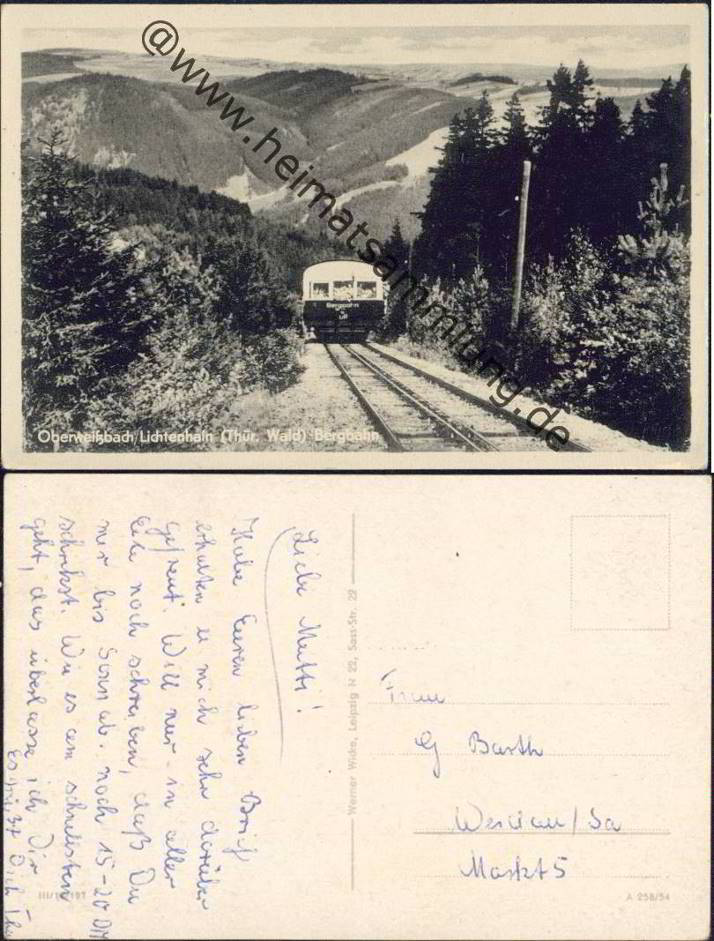 @www.heimatsammlung.de
Bergbahn
Oberweißbach Lichtenhain (Thür. Wald) Bergbahn
Liebe Mutti!
Habe Euren lieben Brief
erhalten u mich sehr darüber
gefreut. Will nur in aller
Eile noch schreiben, daß Du
mir bis Sonnab. noch 15-20 DM
schickst. Wie es am schnellsten
geht, das überlasse ich Dir
Es grüßt Dich
Werner Wicke, Leipzig N 22, Sass-Str. 22
Frau
G Barth
Werdau/Sa
Markt 5
A 258/54